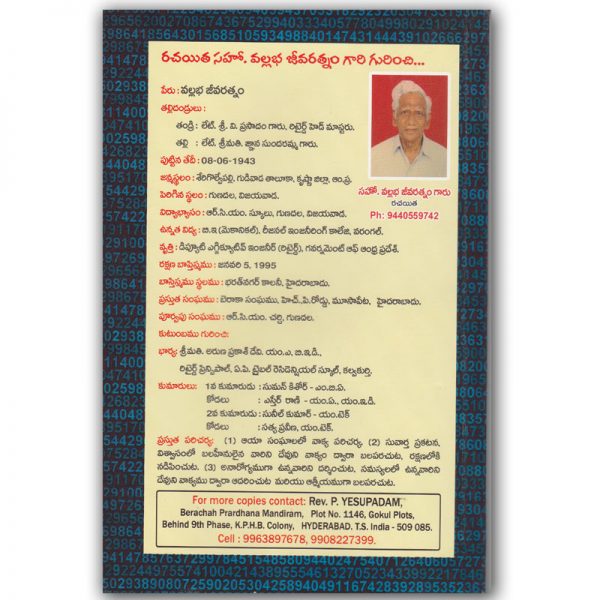 రచయిత సహో. వల్లభ జీవరత్నం గారి గురించి...
పేరు : వల్లభ జీవరత్నం
తల్లిదండ్రులు :
తండ్రి : లేట్. శ్రీ. వి. ప్రసాదం గారు, రిటైర్డ్ హెడ్ మాస్టరు.
తల్లి : లేట్. శ్రీమతి. జ్ఞాన సుందరమ్మ గారు.
పుట్టిన తేదీ : 08-06-1943
జన్మస్థలం : శేరిగొల్వేపల్లి, గుడివాడ తాలూకా, కృష్ణా జిల్లా, ఆం.ప్ర.
పెరిగిన స్థలం : గుణదల, విజయవాడ.
సహో. వల్లభ జీవరత్నం గారు
రచయిత
Ph: 9440559742
విద్యాభ్యాసం : ఆర్.సి.యం. స్కూలు, గుణదల, విజయవాడ.
ఉన్నత విద్య : బి.ఇ(మెకానికల్), రీజనల్ ఇంజనీరింగ్ కాలేజి, వరంగల్.
వృత్తి : డిప్యూటి ఎగ్జిక్యూటివ్ ఇంజనీర్ (రిటైర్డ్), గవర్నమెంట్ ఆఫ్ ఆంధ్ర ప్రదేశ్.
రక్షణ బాప్తిస్మము : జనవరి 5, 1995
బాప్తిస్మము స్థలము : భరత్‌నగర్ కాలనీ, హైదరాబాదు.
ప్రస్తుత సంఘము : బెరాకా సంఘము, హెచ్.పి.రోడ్డు, మూసాపేట, హైదరాబాదు.
పూర్వపు సంఘము : ఆర్.సి.యం. చర్చి, గుణదల.
కుటుంబము గురించి:
భార్య: శ్రీమతి. అరుణ ప్రకాశ్ దేవి. యం.ఎ, బి.ఇడి.,
రిటైర్డ్ ప్రిన్సిపాల్, ఏ.పి. ట్రైబల్ రెసిడెన్షియల్ స్కూల్, కల్వకుర్తి.
కుమారులు: 1వ కుమారుడు : సుమన్ కిశోర్ - ఎం.బి.ఏ.
కోడలు : ఎస్తేర్ రాణి - యం.ఏ., యం.ఇడి.
2వ కుమారుడు : సునీల్ కుమార్ - యం.టెక్
కోడలు : సత్య ప్రవీణ, యం.టెక్.
ప్రస్తుత పరిచర్య: (1) ఆయా సంఘాలలో వాక్య పరిచర్య. (2) సువార్త ప్రకటన,
విశ్వాసంలో బలహీనులైన వారిని దేవుని వాక్యం ద్వారా బలపరచుట, రక్షణలోకి
నడిపించుట. (3) అనారోగ్యముగా ఉన్నవారిని దర్శించుట, సమస్యలలో ఉన్నవారిని
దేవుని వాక్యము ద్వారా ఆదరించుట మరియు ఆత్మీయముగా బలపరచుట.
For more copies contact: Rev. P. YESUPADAM,
Berachah Prardhana Mandiram, Plot No. 1146, Gokul Plots,
Behind 9th Phase, K.P.H.B. Colony, HYDERABAD. T.S. India - 509 085.
Cell : 9963897678, 9908227399.